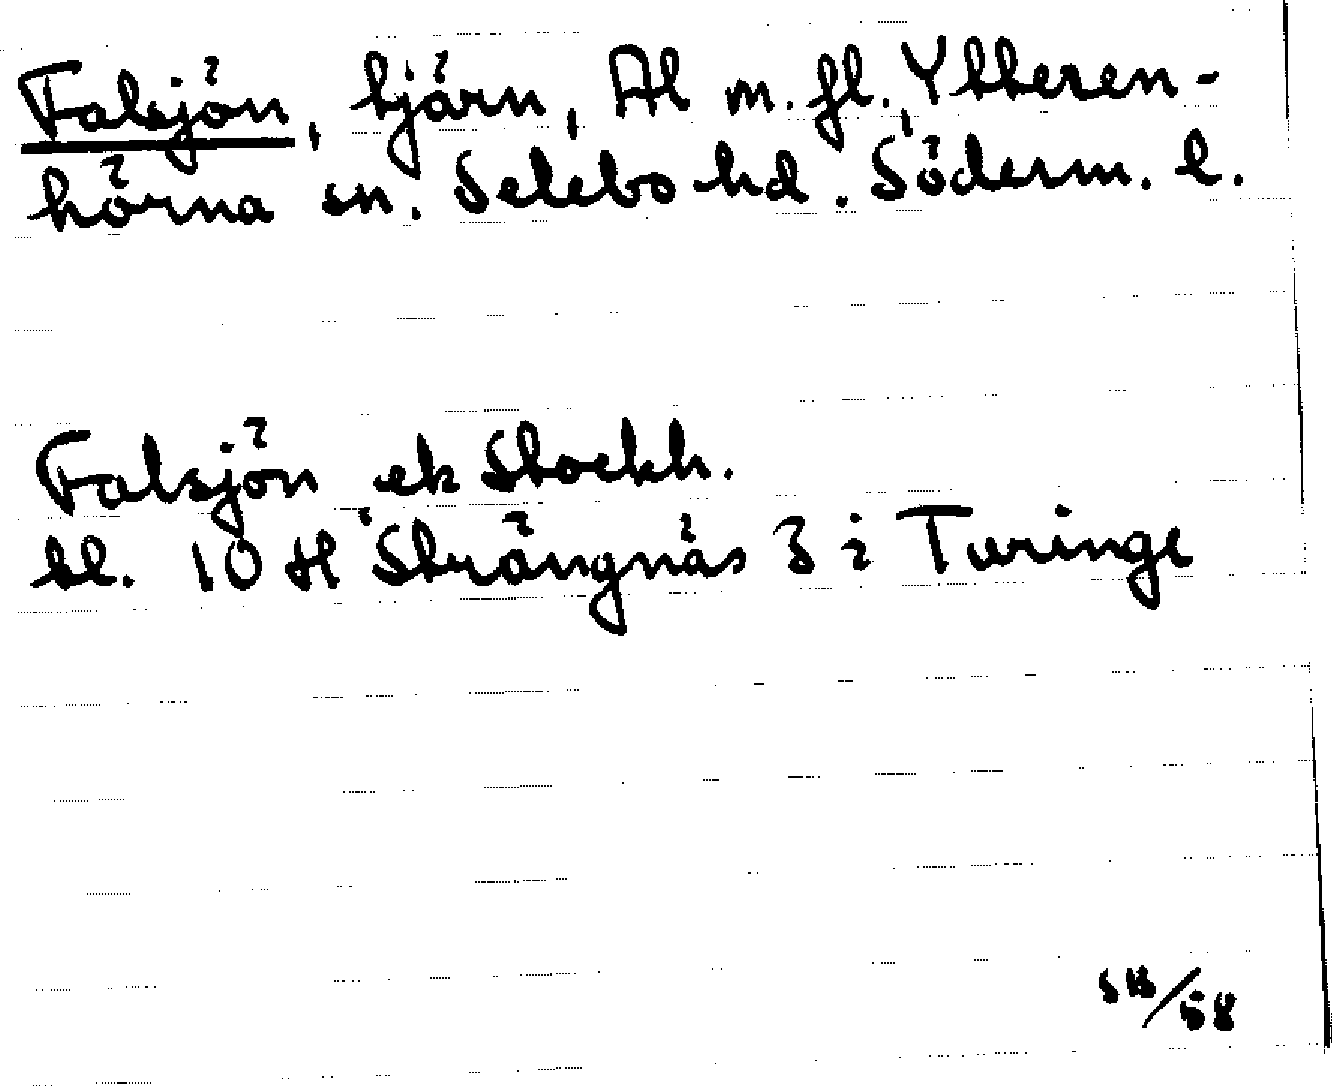 Falsjön, tjärn, Al m. fl., Ytteren-
hörna sn. Selebo hd. Söderm. l.
Falsjön ek Stockh.
bl. 10 H Strängnäs 3 i Turinge
SK/58